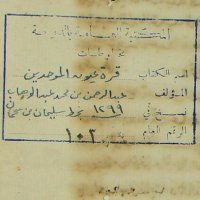 المكتبة السعودية بالرياض
مخطوطات
اسم الكتاب قرة عيون الموحدين
المؤلف عبد الرحمن بن محمد عبد الوهاب
نسخ في ١٢٩٩ بخط سليمان بن سحمان
الرقم العام ١٠٢